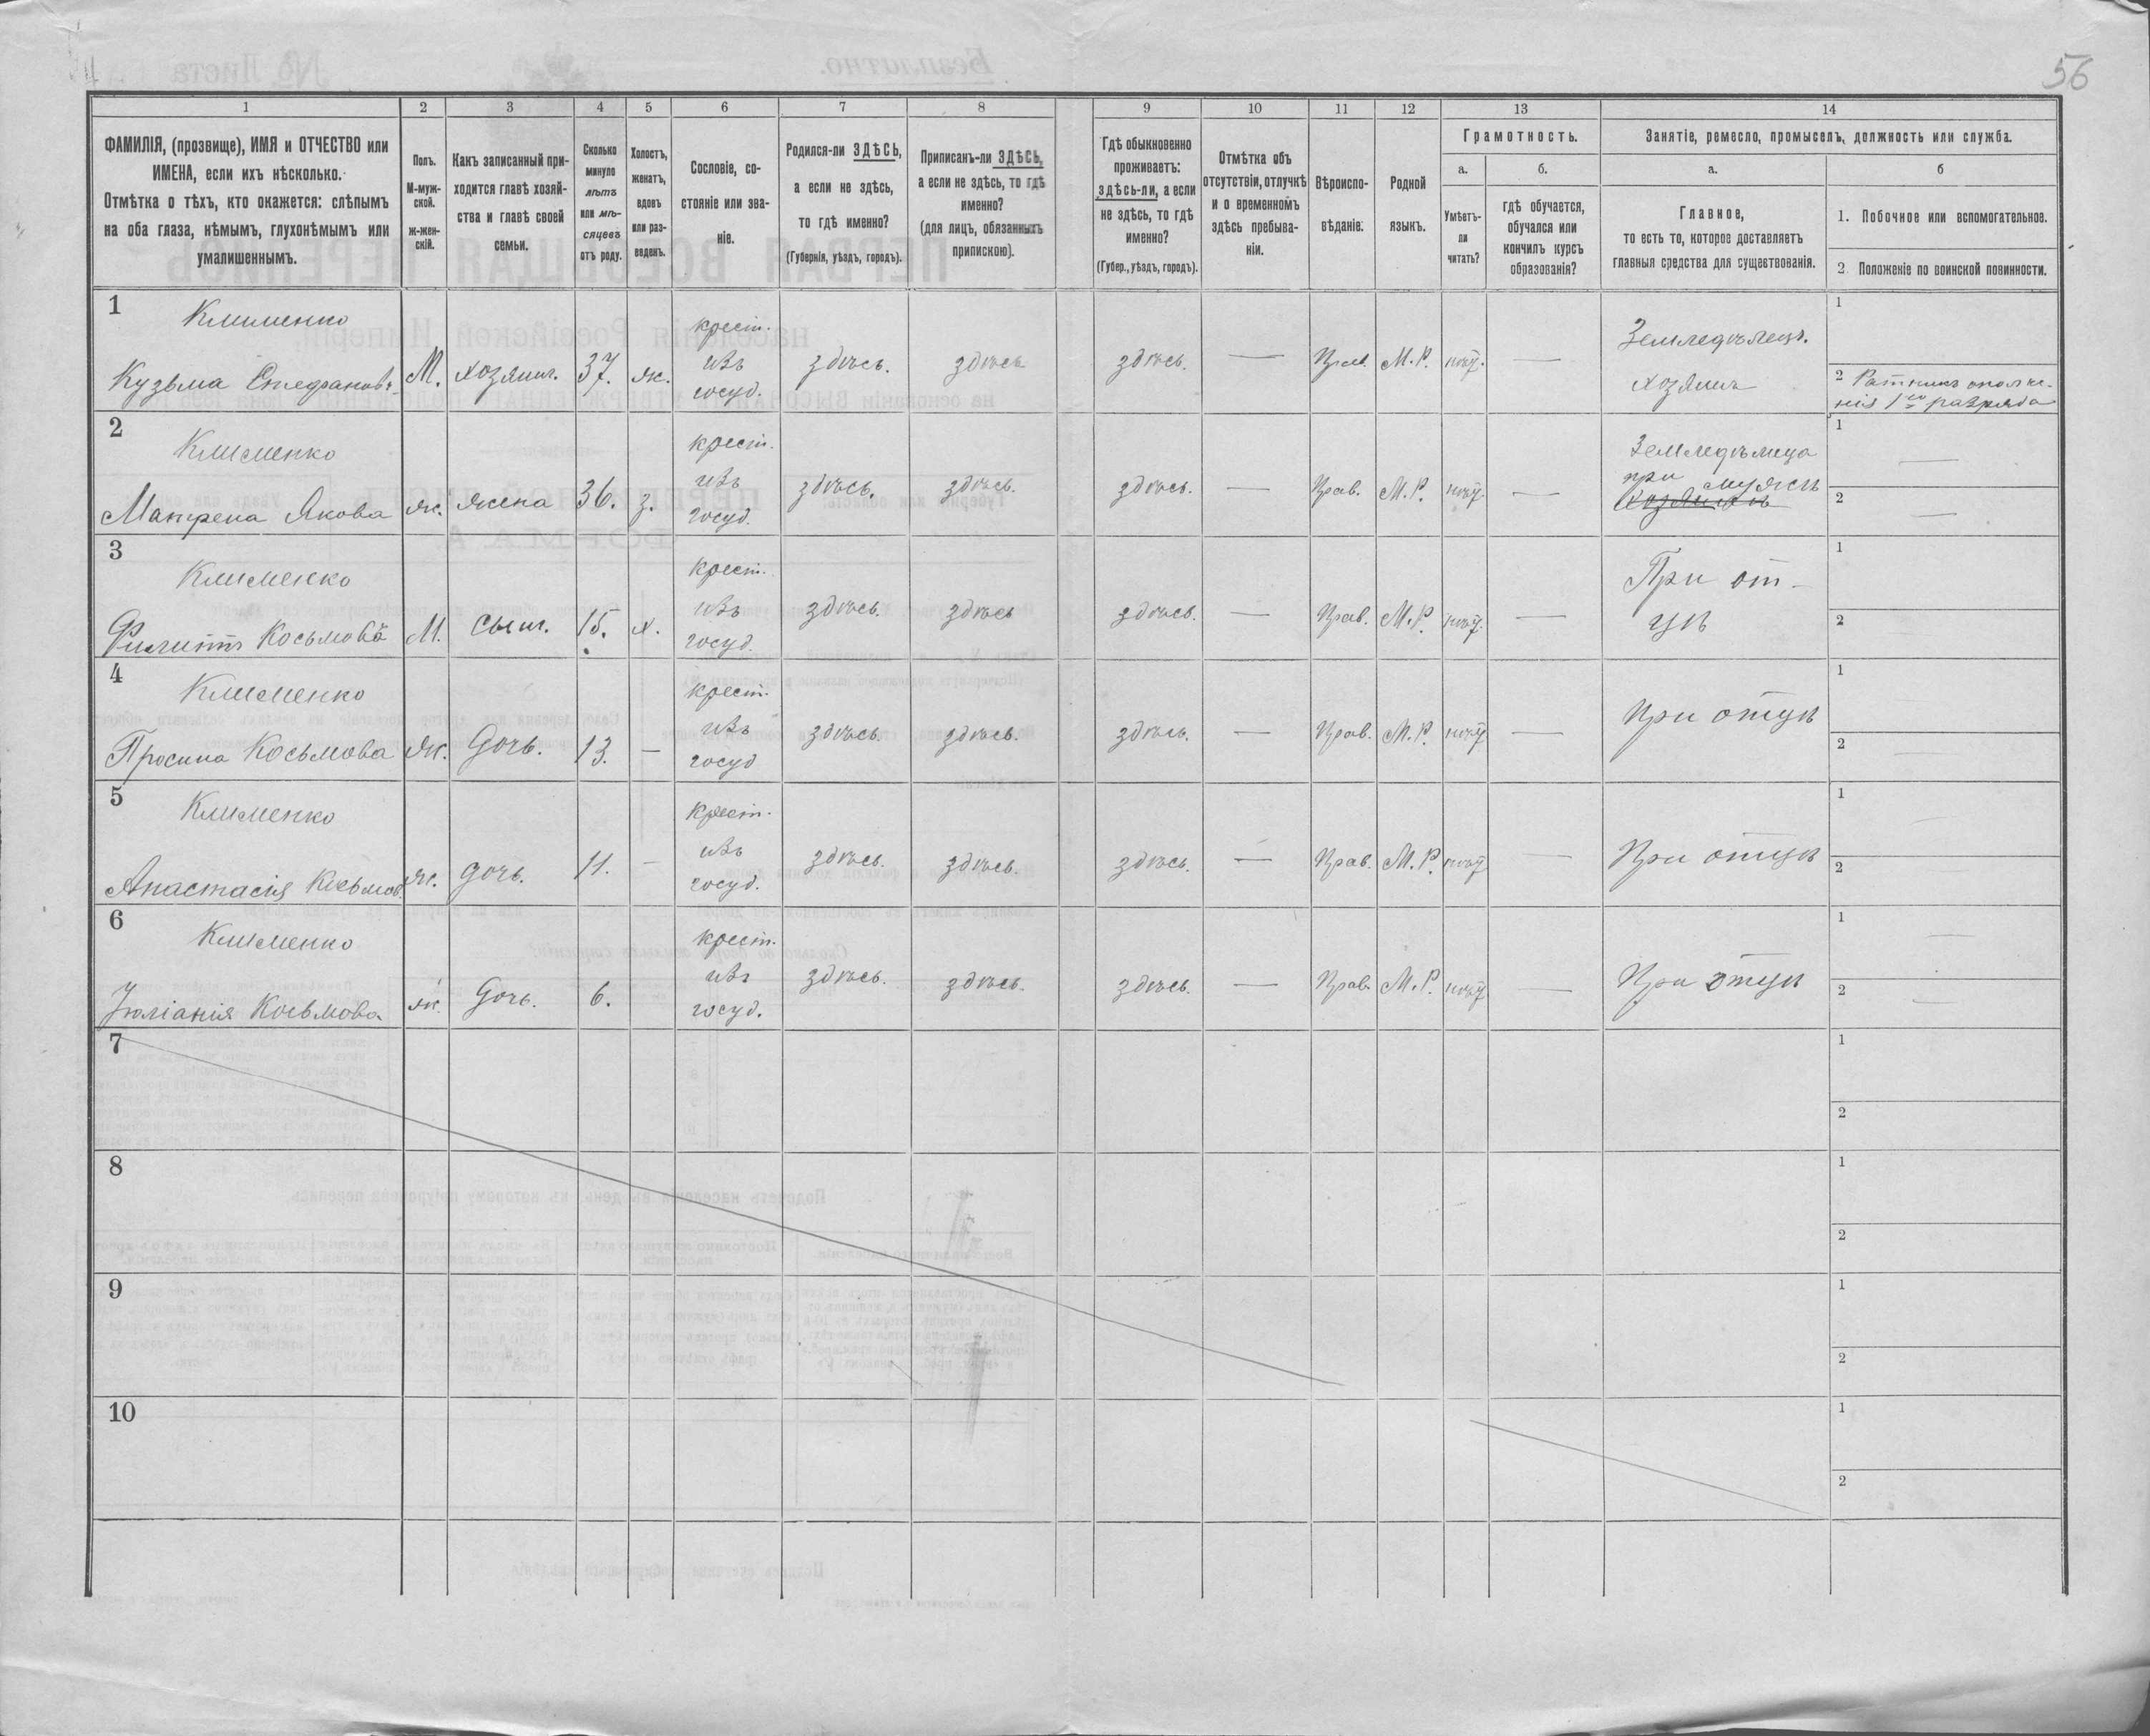 56
1 2 3 4 5 6 7 8 9 10 11 12 13 14
ФАМИЛІЯ, (прозвище), ИМЯ и ОТЧЕСТВО или
ИМЕНА, если ихъ нѣсколько.
Отмѣтка о тѣхъ, кто окажется: слѣпымъ
на оба глаза, нѣмымъ, глухонѣмымъ или
умалишеннымъ.
Полъ.
М-муж-
ской.
ж-жен-
скій.
Какъ записанный при-
ходится главѣ хозяй-
ства и главѣ своей
семьи.
Сколько
минуло
лѣтъ
или мѣ-
сяцевъ
отъ роду.
Холостъ,
женатъ,
вдовъ
или раз-
веденъ.
Сословіе, со-
стояніе или зва-
ніе.
Родился-ли ЗДѢСЬ,
а если не здѣсь,
то гдѣ именно?
(Губернія, уѣздъ, городъ).
Приписанъ-ли ЗДѢСЬ,
а если не здѣсь, то гдѣ
именно?
(для лицъ, обязанныхъ
припискою).
Гдѣ обыкновенно
проживаетъ:
здѣсь-ли, а если
не здѣсь, то гдѣ
именно?
(Губер., уѣздъ, городъ).
Отмѣтка объ
отсутствіи, отлучкѣ
и о временномъ
здѣсь пребыва-
ніи.
Вѣроиспо-
вѣданіе.
Родной
языкъ.
Грамотность.
а.
Умѣетъ-
ли
читать?
б.
гдѣ обучается,
обучался или
кончилъ курсъ
образованія?
Занятіе, ремесло, промыселъ, должность или служба.
а.
Главное,
то есть то, которое доставляетъ
главныя средства для существованія.
б
1. Побочное или вспомогательное.
2. Положеніе по воинской повинности.
1
Клименко
Кузьма Стефановъ
М.
хозяинъ.
37.
ж.
крест.
изъ
госуд.
здѣсь.
здѣсь
здѣсь.
—
Прав.
М.Р.
—
Земледѣлецъ.
хозяинъ
1
2 Ратникъ ополче-
нія 1го разряда
2
Клименко
Матрена Якова
ж.
жена
36.
з.
крест.
изъ
госуд.
здѣсь.
здѣсь.
здѣсь.
—
Прав.
М.Р.
—
Земледѣлица
при мужѣ
1 —
2 —
3
Клименко
Филиппъ Косьмовъ
М.
сынъ.
15.
х.
крест.
изъ
госуд.
здѣсь.
здѣсь
здѣсь.
—
Прав.
М.Р.
—
При от-
цѣ
1
2
4
Клименко
Просина Косьмова
ж.
дочь.
13.
—
крест.
изъ
госуд
здѣсь.
здѣсь.
здѣсь.
—
Прав.
М.Р.
—
При отцѣ
1
2
5
Клименко
Анастасія Косьмов.
ж.
дочь.
11.
—
крест.
изъ
госуд.
здѣсь.
здѣсь.
здѣсь.
—
Прав.
М.Р.
—
При отцѣ
1
2
6
Клименко
Іюліанія Косьмова
ж.
дочь.
6.
крест.
изъ
госуд.
здѣсь.
здѣсь.
здѣсь.
—
Прав.
М.Р.
—
При отцѣ
1
2
7
1
2
8
1
2
9
1
2
10
1
2